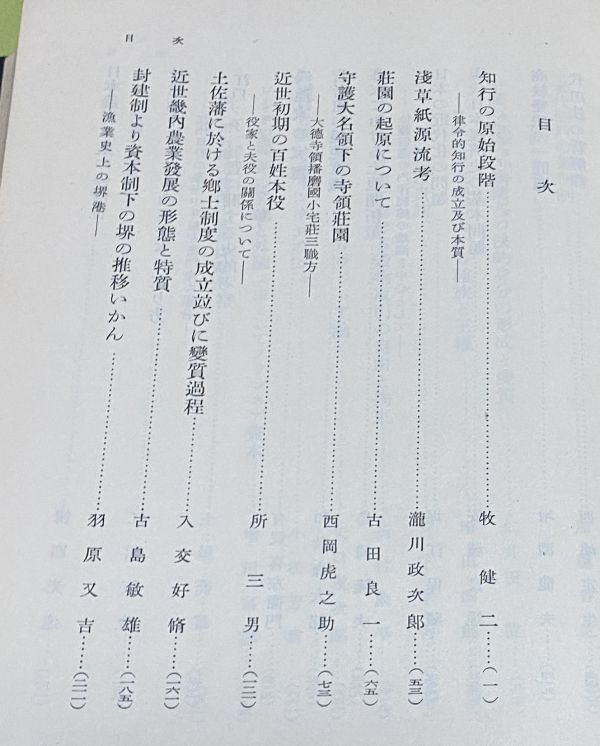 目次
知行の原始段階……牧健二……(一)
――律令的知行の成立及び本質――
淺草紙源流考……瀧川政次郎……(五三)
莊園の起原について……古田良一……(六五)
守護大名領下の寺領莊園……西岡虎之助……(七三)
――大德寺領播磨國小宅莊三職方――
近世初期の百姓本役……所三男……(一二一)
――役家と夫役の關係について――
土佐藩に於ける鄕士制度の成立竝びに變質過程……入交好脩……(一六一)
近世畿內農業發展の形態と特質……古島敏雄……(一八五)
封建制より資本制下の堺の推移いかん……羽原又吉……(二一一)
――漁業史上の堺港――
目次